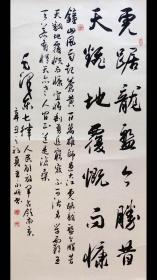 虎踞龍盤今勝昔
天翻地覆慨而慷
鐘山風雨起蒼黃百萬雄師過大江虎踞龍盤今勝昔
天翻地覆慨而慷宜將剩勇追窮寇不可沽名學霸王
天若有情天亦老人間正道是滄桑
毛澤東七律人民解放軍占領南京
辛丑